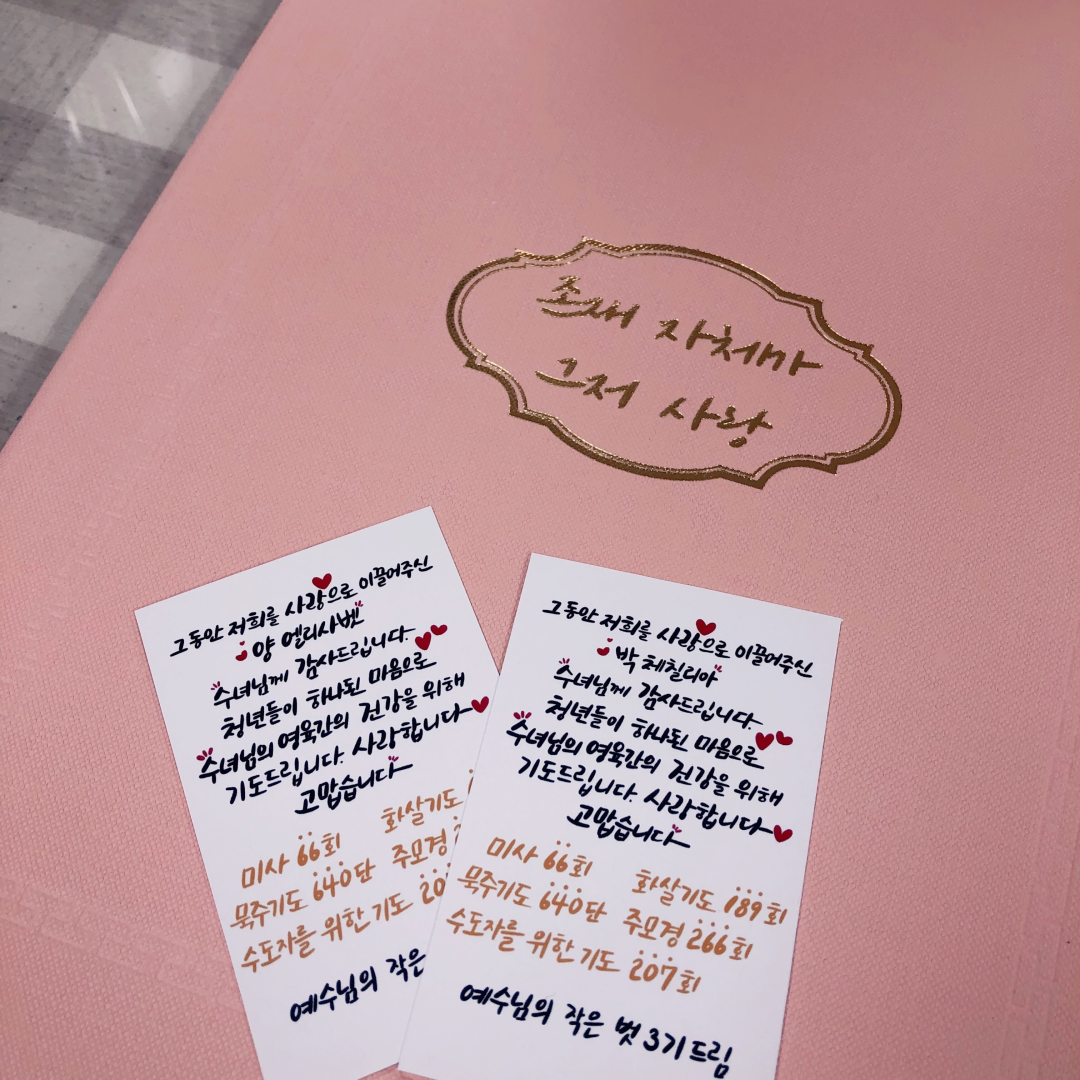 존재 자체가
그저 사랑
그동안 저희를 사랑으로 이끌어주신
양 엘리사벳
수녀님께 감사드립니다.
청년들이 하나된 마음으로
수녀님의 영육간의 건강을 위해
기도드립니다. 사랑합니다
고맙습니다
미사 66회 화살기도
묵주기도 640단 주모경
수도자를 위한 기도
예수님의 작은
그동안 저희를 사랑으로 이끌어주신
박 체칠리아
수녀님께 감사드립니다.
청년들이 하나된 마음으로
수녀님의 영육간의 건강을 위해
기도드립니다. 사랑합니다
고맙습니다
미사 66회 화살기도 189회
묵주기도 640단 주모경 266회
수도자를 위한 기도 207회
예수님의 작은 벗 3기 드림